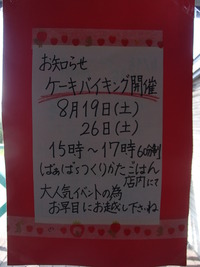 お知らせ
ケーキバイキング開催
8月19日(土)
26日(土)
15時〜17時60分制
ばぁばぁつくりかたごはん
店内にて
大人気イベントの為
お早目にお越し下さいね